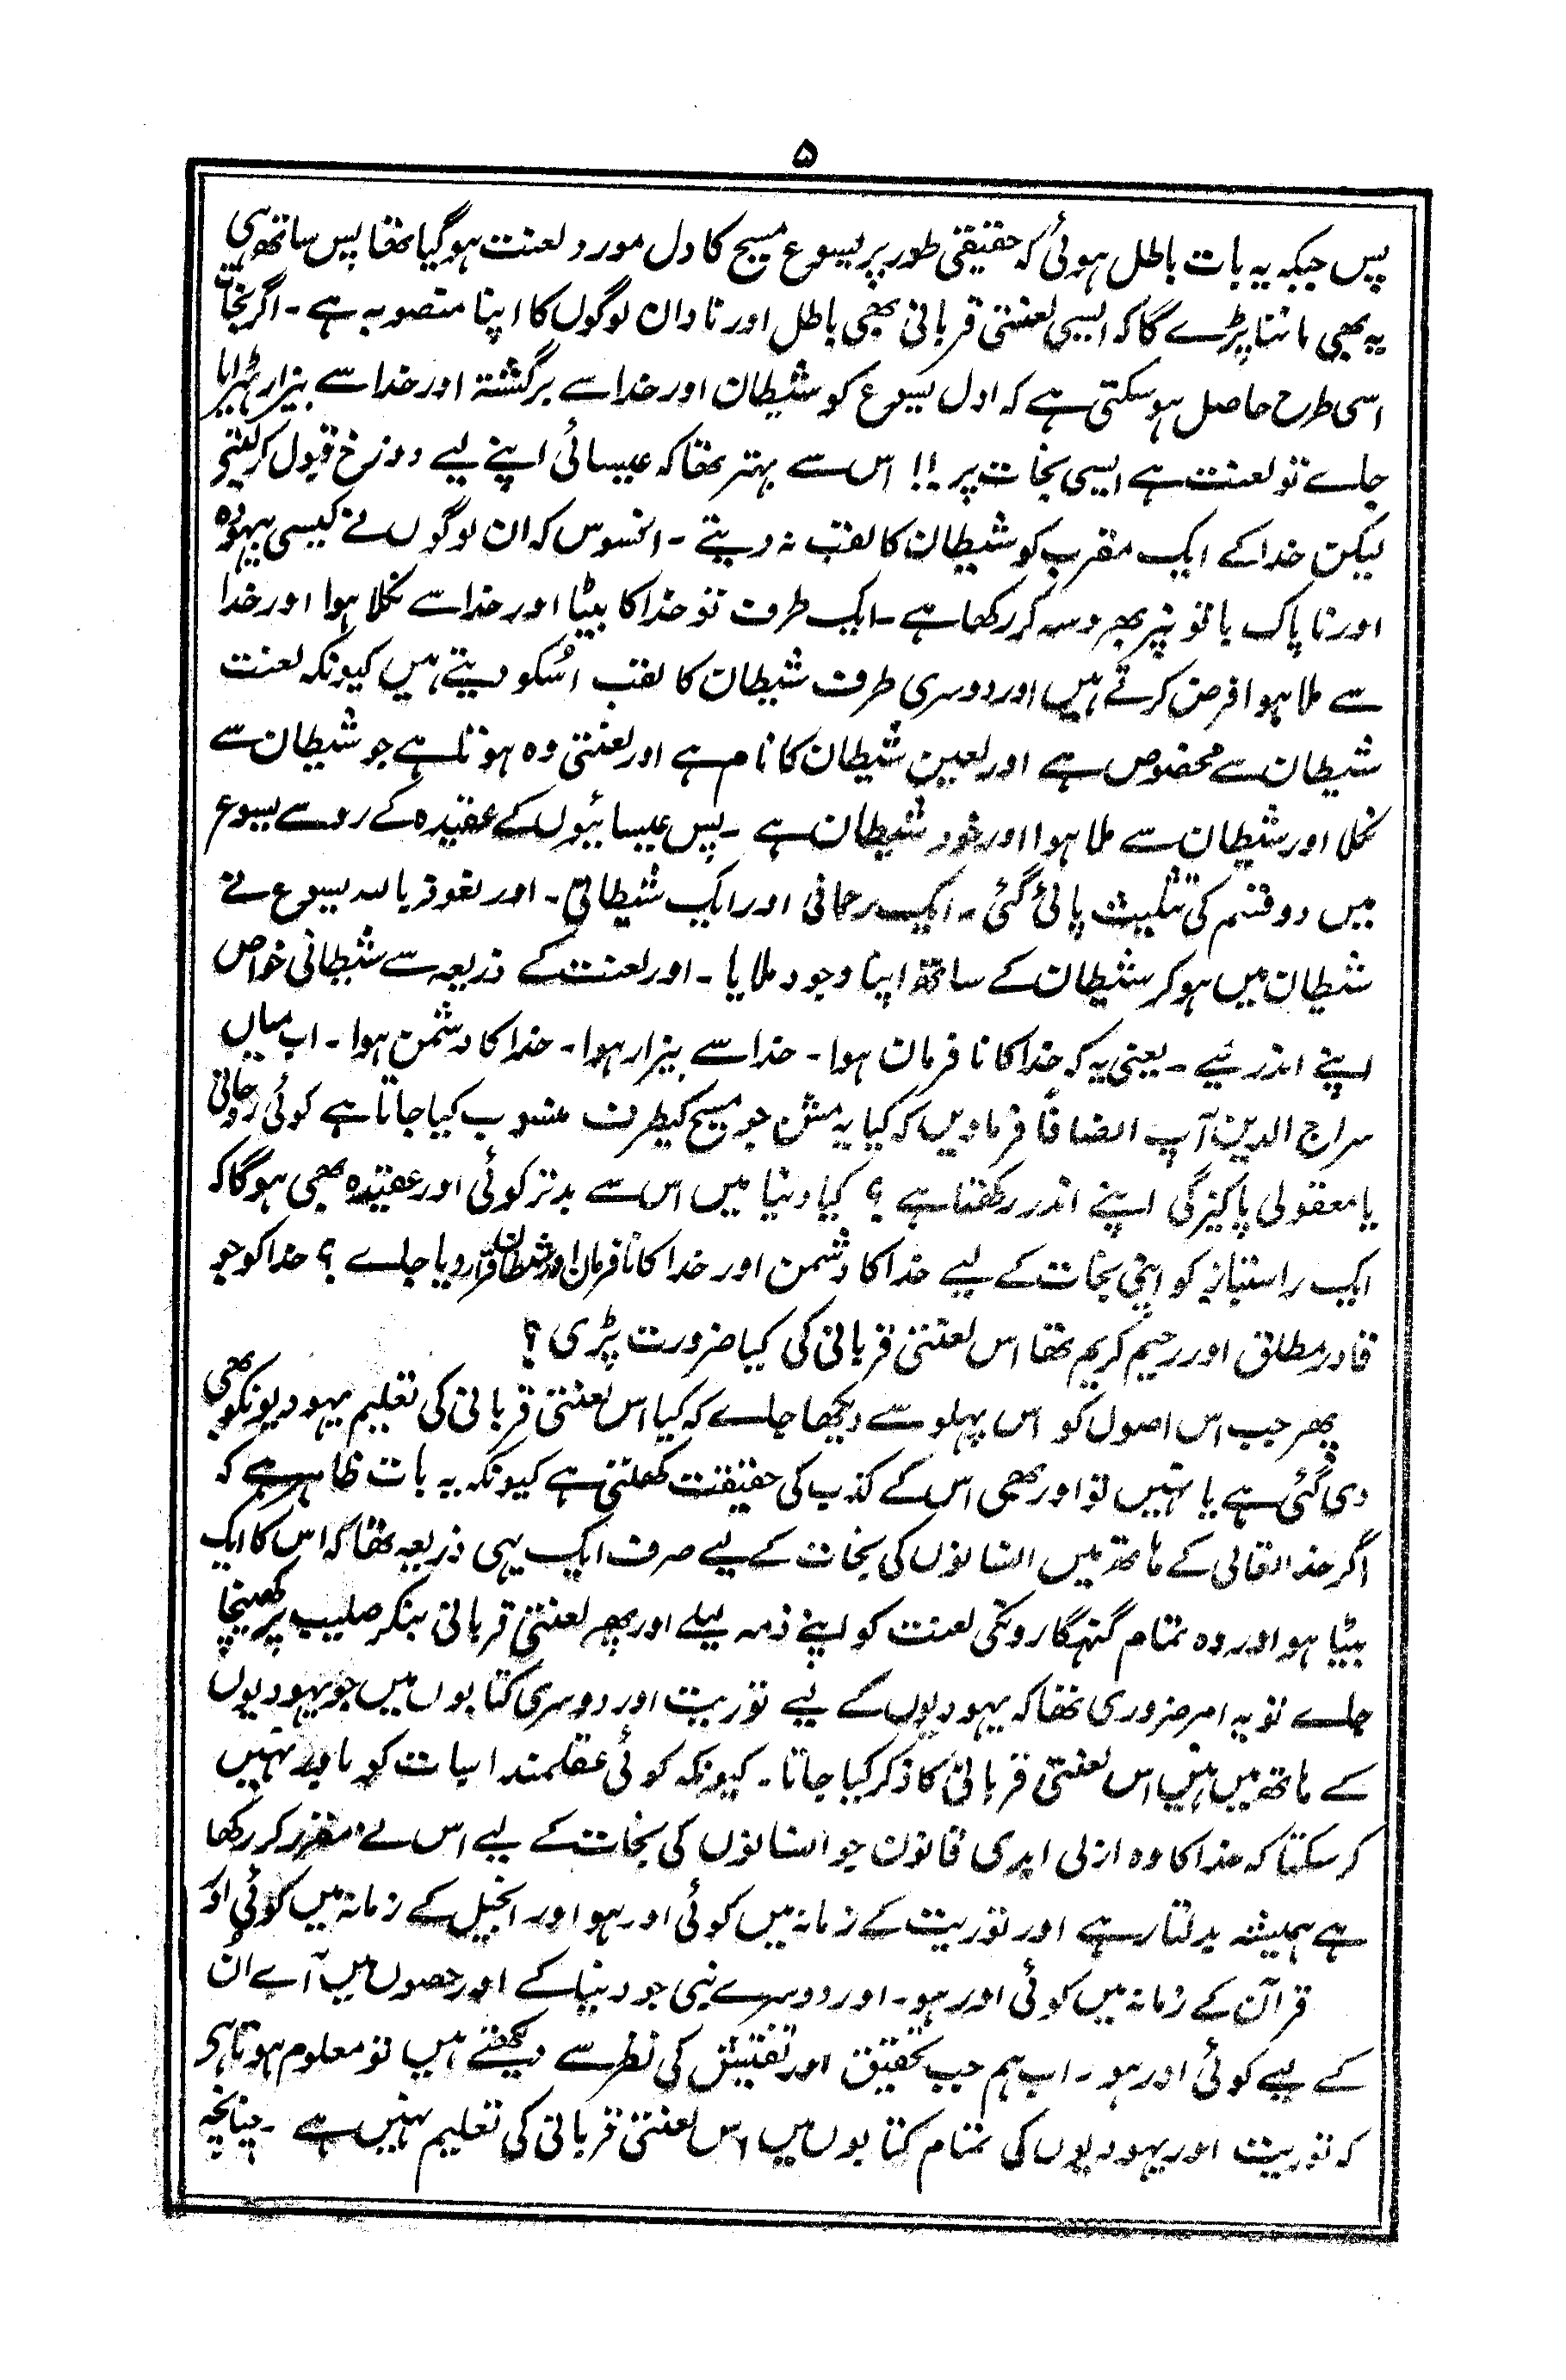 ۵
پس جبکہ یہ بات باطل ہوئی کہ حقیقی طور پر یسوع مسیح کا دل مورد لعنت ہوگیا تھا پس ساتھ ہی
یہ بھی ماننا پڑے گا کہ ایسی لعنتی قربانی بھی باطل اور نادان لوگوں کا اپنا منصوبہ ہے ۔ اگر نجات
اسی طرح حاصل ہوسکتی ہے کہ اول یسوع کو شیطان اور خدا سے برگشتہ اور خدا سے بیزار ٹھہرایا
جاے تو لعنت ہے ایسی نجات پر !! اس سے بہتر تھا کہ عیسائی اپنے لیے دوزخ قبول کر لیتے
لیکن خدا کے ایک مقرب کو شیطان کا لقب نہ دیتے ۔ افسوس کہ ان لوگوں نے کیسی بیہودہ
اور ناپاک باتونپر بھروسہ کر رکھا ہے ۔ ایک طرف تو خدا کا بیٹا اور خدا سے نکلا ہوا اور خدا
سے ملا ہوا فرض کرتے ہیں اور دوسری طرف شیطان کا لقب اُسکو دیتے ہیں کیونکہ لعنت
شیطان سے مخصوص ہے اور لعین شیطان کا نام ہے اور لعنتی وہ ہوتا ہے جو شیطان سے
نکلا اور شیطان سے ملا ہوا اور خود شیطان ہے ۔ پس عیسائیوں کے عقیدہ کے رو سے یسوع
میں دو قسم کی تثلیث پائی گئی ۔ ایک رحمانی اور ایک شیطانی ۔ اور نعوذ باللہ یسوع نے
شیطان میں ہو کر شیطان کے ساتھ اپنا وجود ملایا ۔ اور لعنت کے ذریعہ سے شیطانی خواص
اپنے اندر لیے ۔ یعنی یہ کہ خدا کا نافرمان ہوا ۔ خدا سے بیزار ہوا ۔ خدا کا دشمن ہوا ۔ اب میاں
سراج الدین آپ انصافاً فرماویں کہ کیا یہ مشن جو مسیح کیطرف منسوب کیا جاتا ہے کوئی روحانی
یا معقولی پاکیزگی اپنے اندر رکھتا ہے ؟ کیا دنیا میں اس سے بدتر کوئی اور عقیدہ بھی ہوگا کہ
ایک راستباز کو اپنی نجات کے لیے خدا کا دشمن اور خدا کا نافرمان اور شیطان قرار دیا جاے ؟ خدا کو جو
قادر مطلق اور رحیم کریم تھا اس لعنتی قربانی کی کیا ضرورت پڑی ؟
پھر جب اس اصول کو اس پہلو سے دیکھا جاے کہ کیا اس لعنتی قربانی کی تعلیم یہودیونکو بھی
دی گئی ہے یا نہیں تو اور بھی اس کے کذب کی حقیقت کھلتی ہے کیونکہ یہ بات ظاہر ہے کہ
اگر خدا تعالی کے ہاتھ میں انسانوں کی نجات کے لیے صرف ایک یہی ذریعہ تھا کہ اس کا ایک
بیٹا ہو اور وہ تمام گنہگارونکی لعنت کو اپنے ذمہ لیلے اور پھر لعنتی قربانی بنکر صلیب پر کھینچا
جاے تو یہ امر ضروری تھا کہ یہودیوں کے لیے توریت اور دوسری کتابوں میں جو یہودیوں
کے ہاتھ میں ہیں اس لعنتی قربانی کا ذکر کیا جاتا ۔ کیونکہ کوئی عقلمند اسبات کو باور نہیں
کر سکتا کہ خدا کا وہ ازلی ابدی قانون جو انسانوں کی نجات کے لیے اس نے مقرر کر رکھا
ہے ہمیشہ بدلتا رہے اور توریت کے زمانہ میں کوئی اور ہو اور انجیل کے زمانہ میں کوئی اور
قرآن کے زمانہ میں کوئی اور ہو ۔ اور دوسرے نبی جو دنیا کے اور حصوں میں آے اُن
کے لیے کوئی اور ہو ۔ اب ہم جب تحقیق اور تفتیش کی نظر سے دیکھتے ہیں تو معلوم ہوتا ہی
کہ توریت اور یہودیوں کی تمام کتابوں میں اس لعنتی قربانی کی تعلیم نہیں ہے ۔ چنانچہ